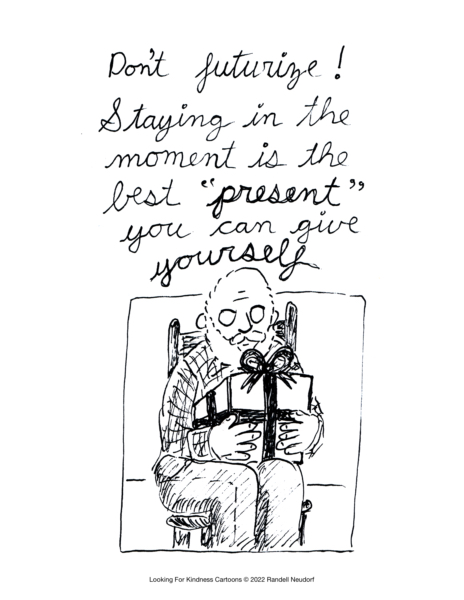 Don't futurize!
Staying in the
moment is the
best "present"
you can give
yourself
Looking For Kindness Cartoons © 2022 Randell Neudorf